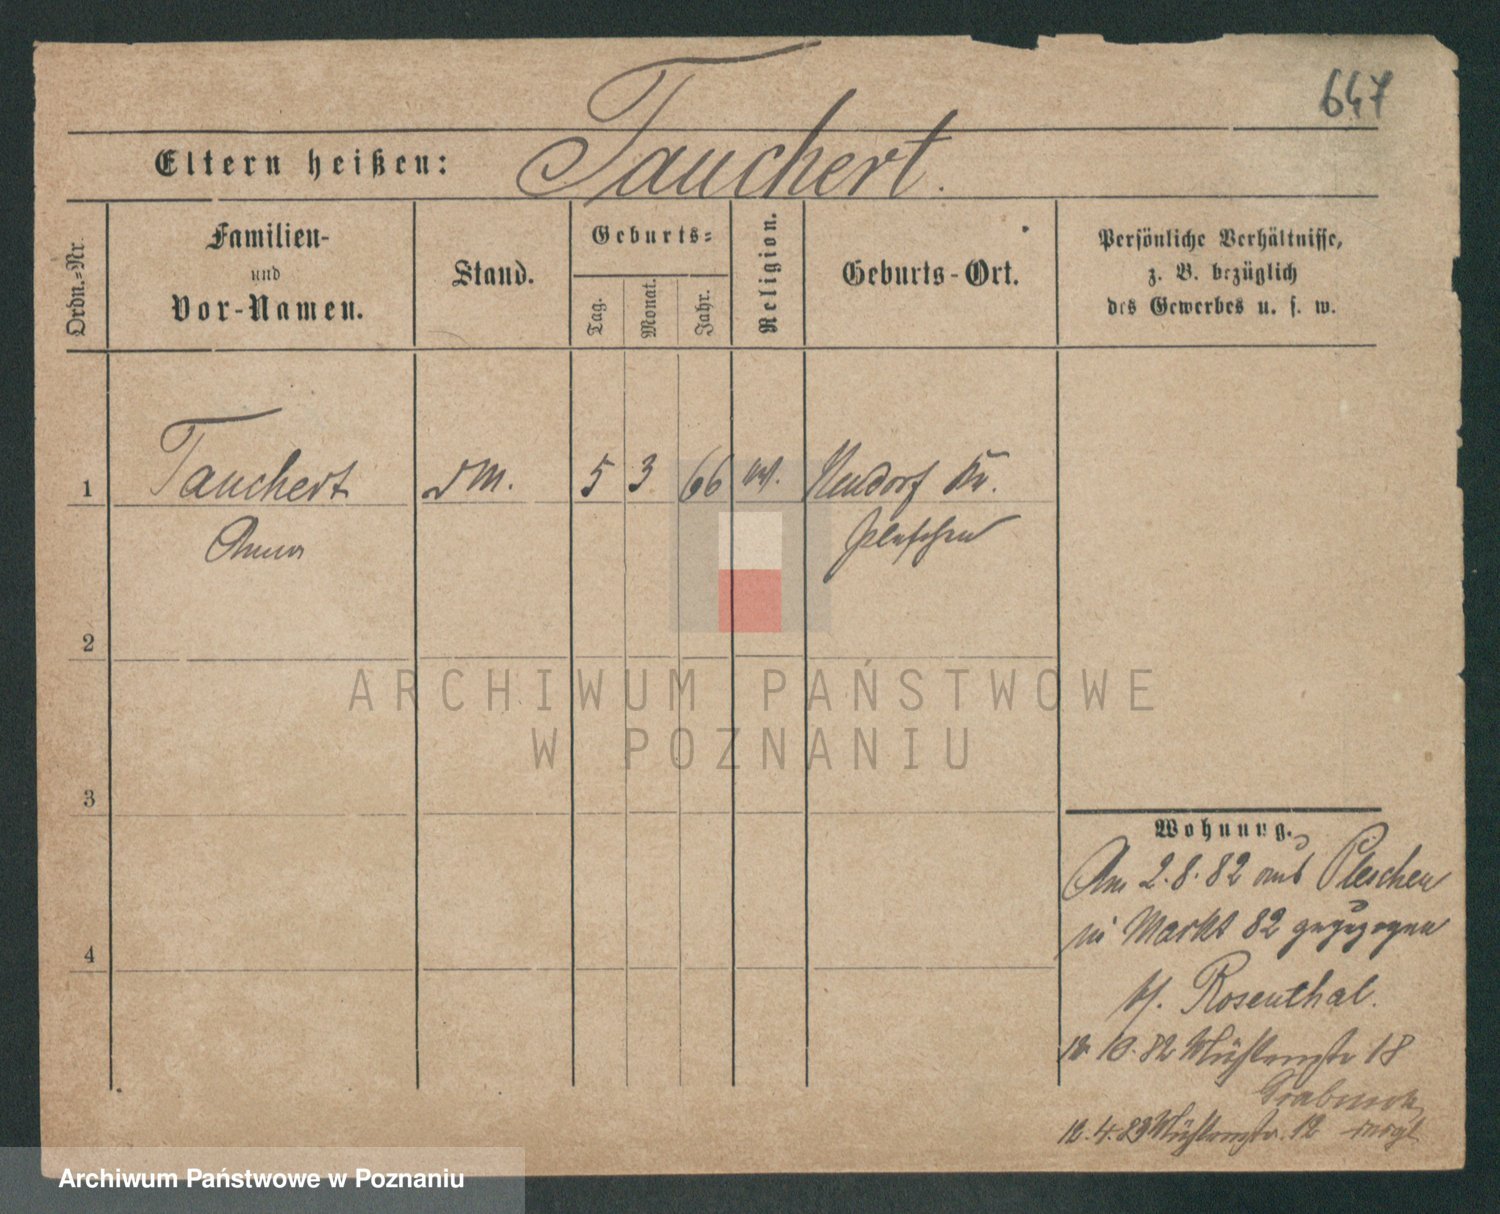 647
Tauchert.
Eltern heißen:
Ordn.-Nr.
Familien-
und
Vor-Namen.
Stand.
Geburts-
Tag.
Monat.
Jahr.
Religion.
Geburts-Ort.
Persönliche Verhältnisse,
z. B. bezüglich
des Gewerbes u. s. w.
1 Tauchert DM. 5 3 66 ev. Neudorf Kr.
Anna Pleschen
2
3
4
Wohnung.
Am 2.8.82 aus Pleschen
in Markt 82 gezogen
b/. Rosenthal.
10.82 Mühlenstr 18
12.4.83 Mühlenstr. 12
ARCHIWUM PAŃSTWOWE
W POZNANIU
Archiwum Państwowe w Poznaniu